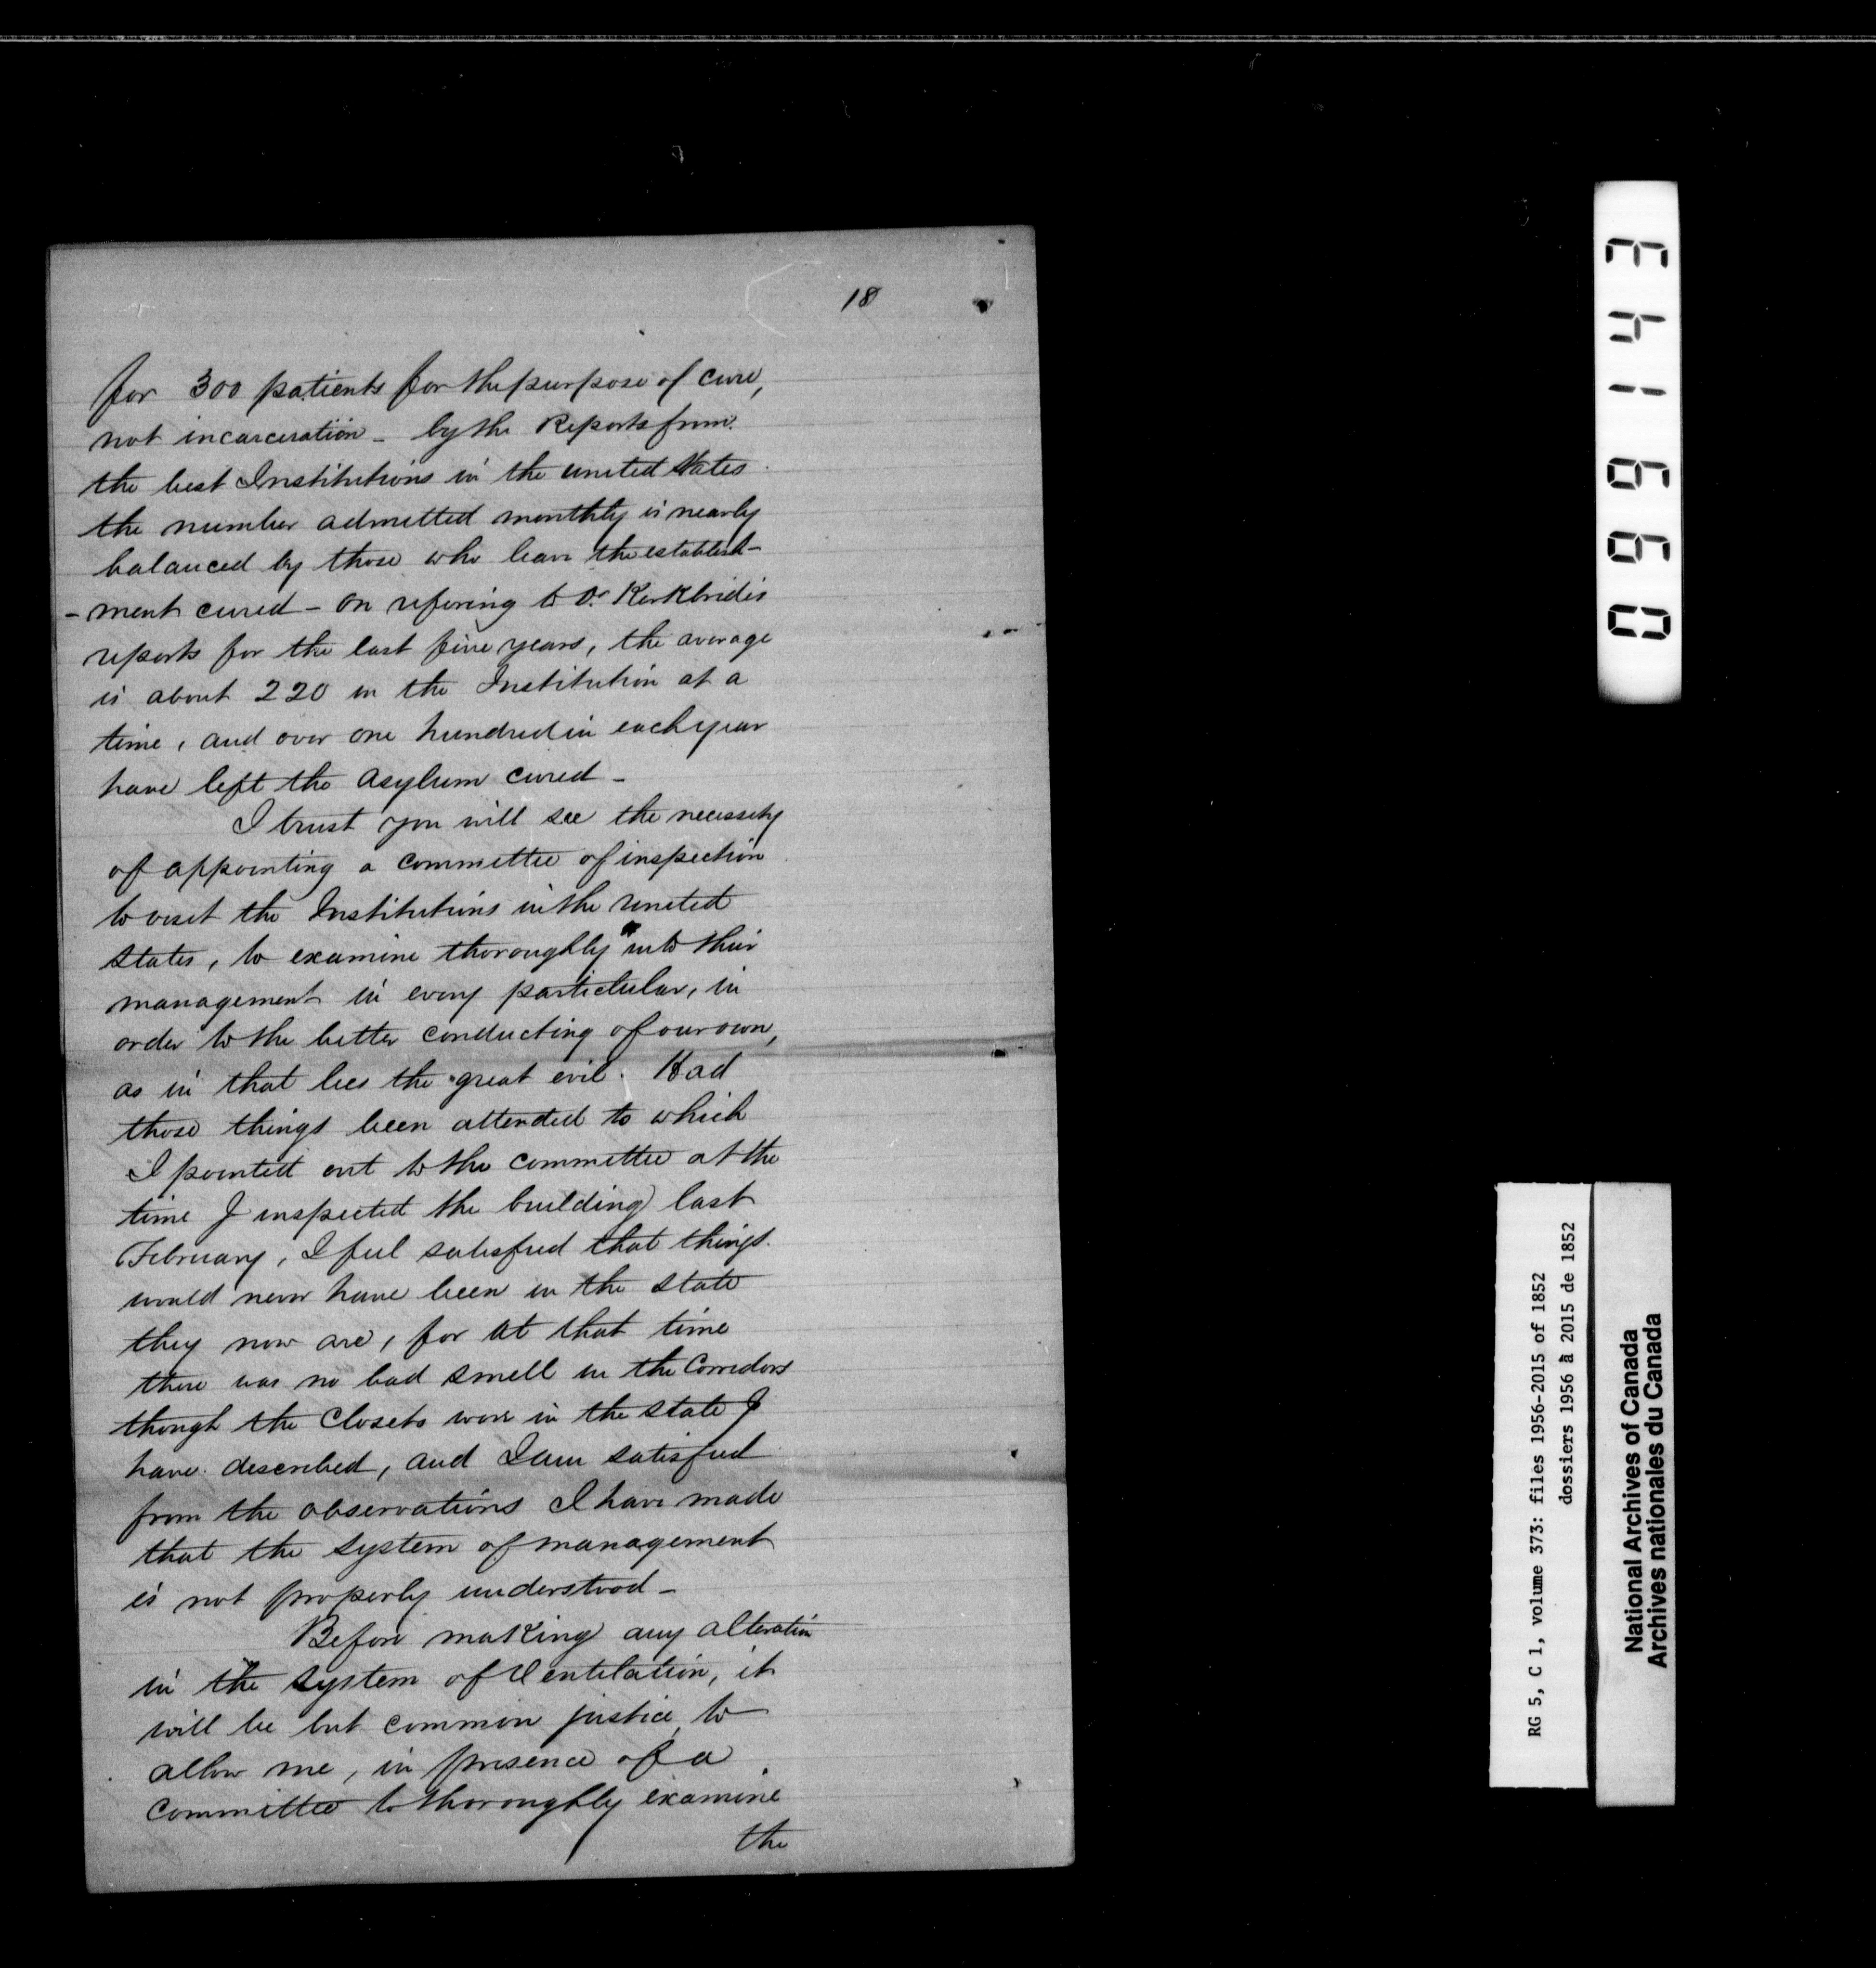 18
for 300 patients for the purpose of cure,
not incarceration - by the Reports from
the best Institutions in the united States
the number admitted monthly is nearly
balanced by those who leave the establish-
-ment cured - on refering to Dr Kerkbrides
reports for the last five years, the average
is about 220 in the Institution at a
time, and over one hundred in each year
have left the asylum cured -
I trust you will see the necessity
of appointing a committee of inspection
to visit the Institutions in the united
States, to examine thoroughly into their
management in every particular, in
order to the better conducting of our own,
as in that lies the great evil. Had
those things been attended to which
I pointed out to the committee at the
time I inspected the building last
February, I feel satisfied that things
would never have been in the state
they now are, for at that time
there was no bad smell in the Corredors
though the Closets were in the state I
have described, and I am satisfied
from the observations I have made
that the system of management
is not properly understood -
Before making any alteration
in the system of Ventilation, it
will be but common justice to
allow me, in presence of a
committee to thoroughly examine
the
096143
RG 5, C 1, volume 373: files 1956-2015 of 1852
dossiers 1956 à 2015 de 1852
National Archives of Canada
Archives nationales du Canada